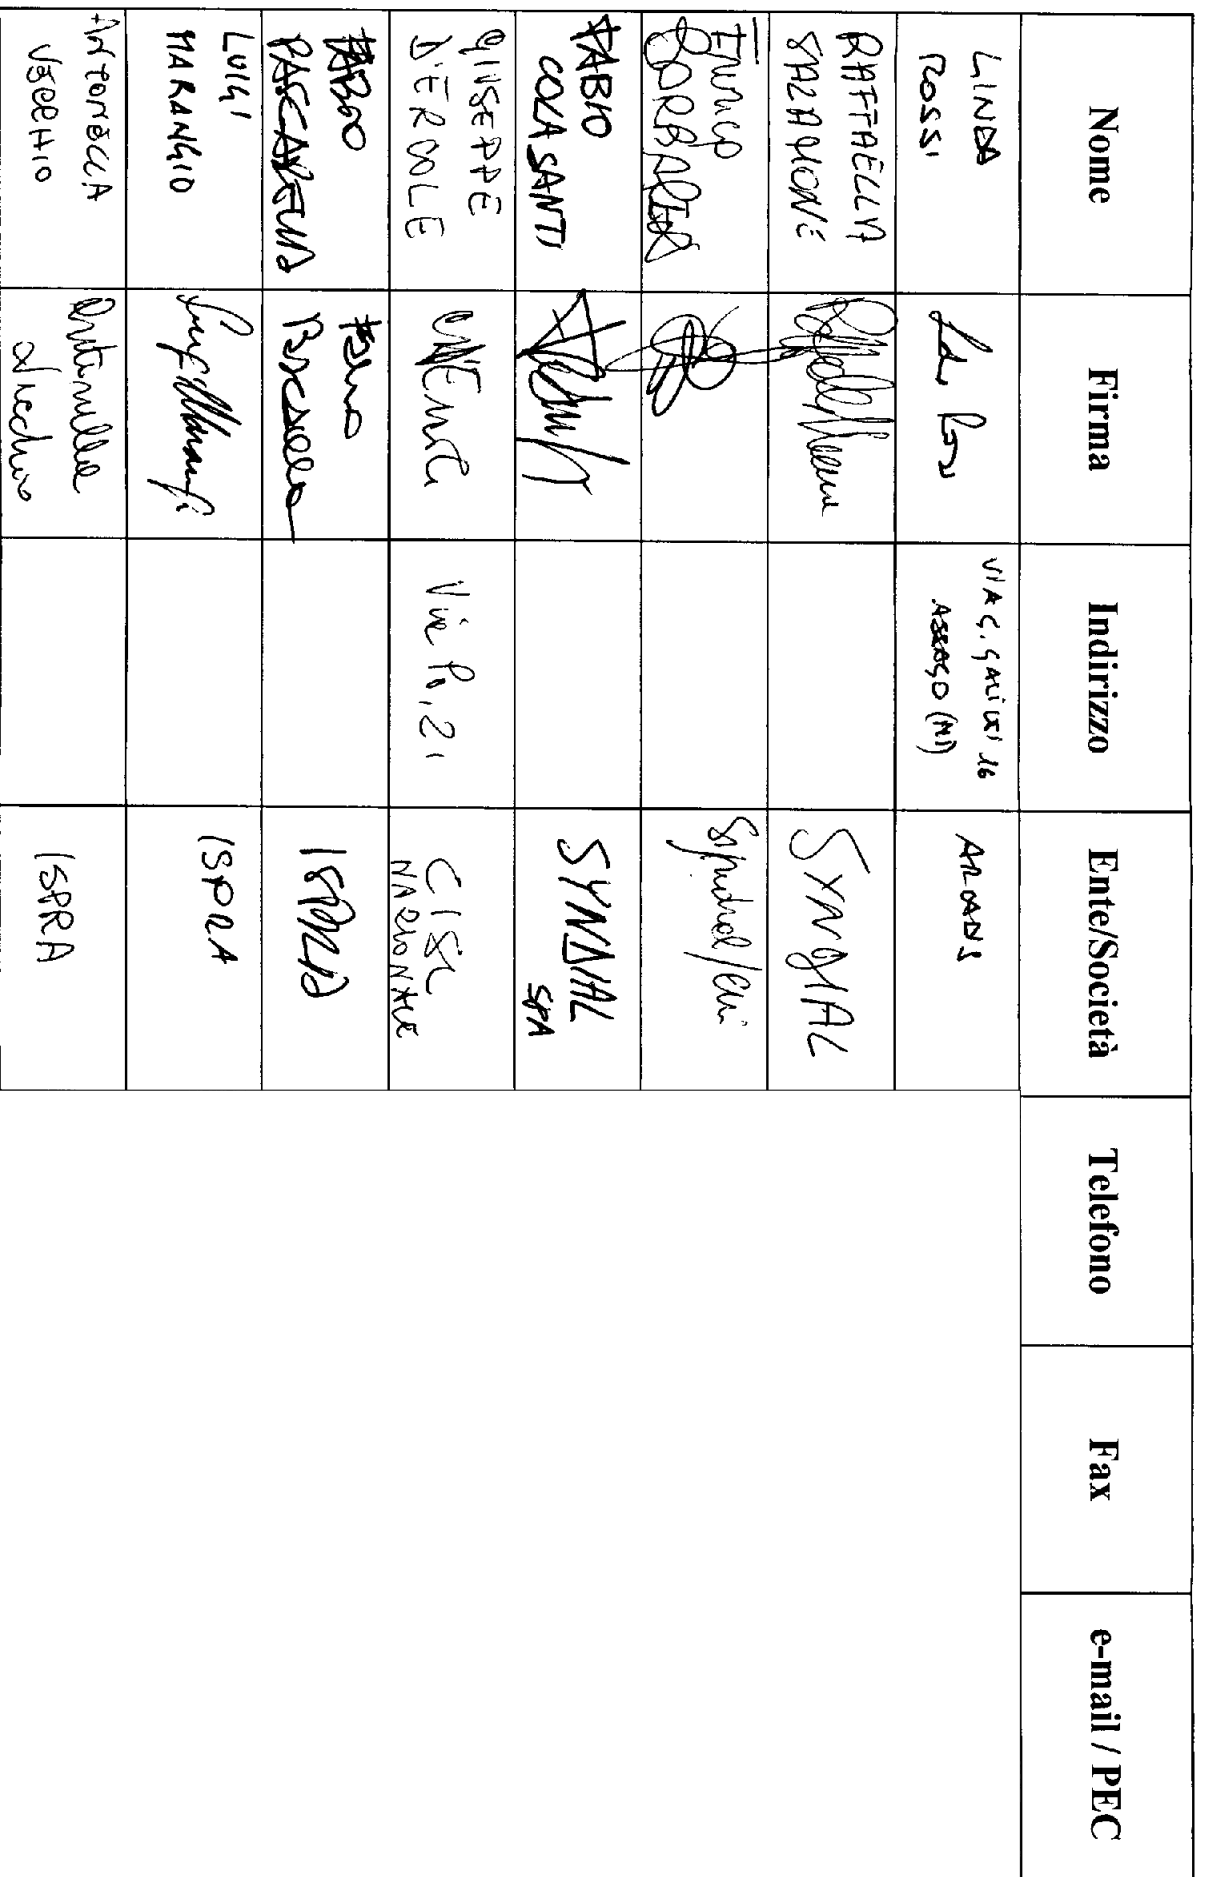 Nome Firma Indirizzo Ente/Società Telefono Fax e-mail / PEC
LINDA
ROSSI
VIA G. 16
ASSAGO (MI)
RAFFAELLA
SYNDIAL
Enrico
Syndial/Eni
FABIO
COLASANTI
SYNDIAL
SPA
GIUSEPPE
D'ERCOLE
Via Po, 21
CISL
NAZIONALE
FABIO
PASCARELLA
Fabio
ISPRA
LUIGI
MARANGIO
ISPRA
ANTONELLA
VECCHIO
Antonella
Vecchio
ISPRA